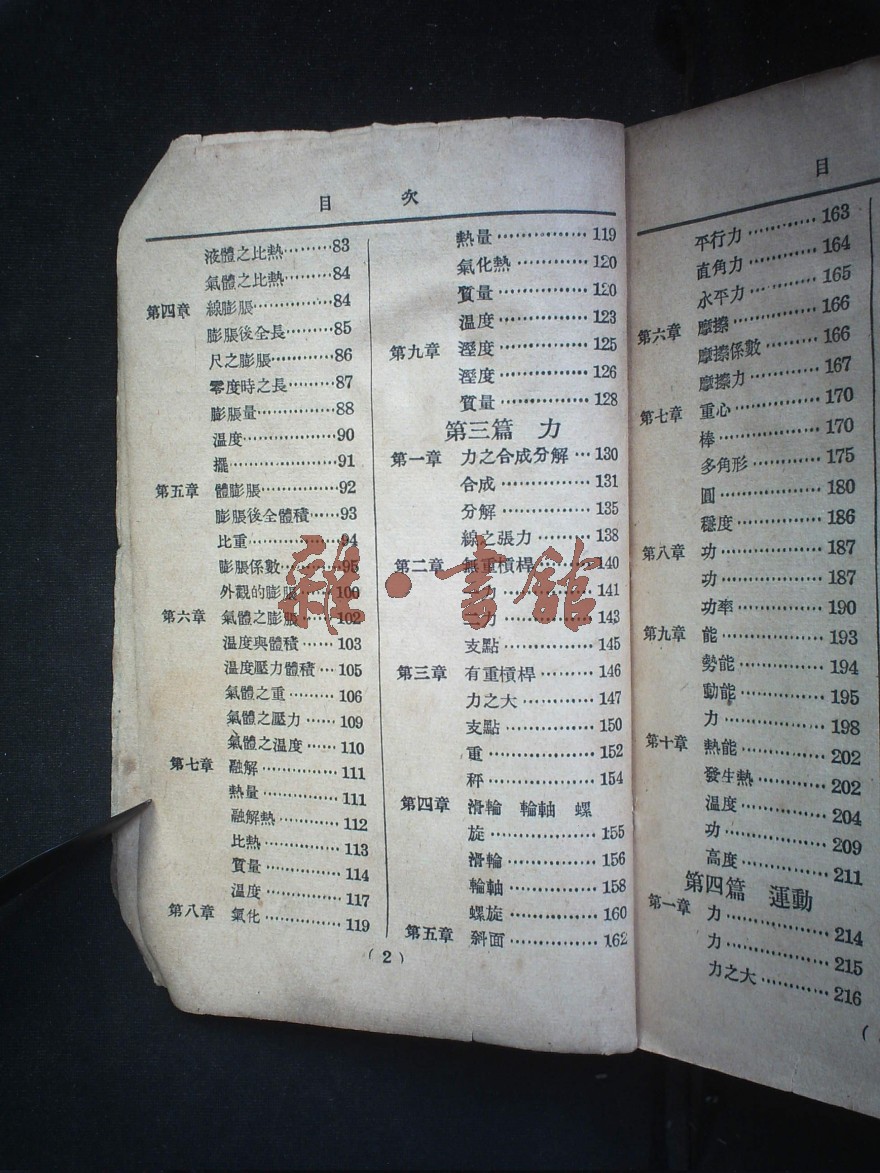 目 次
液體之比熱………83
氣體之比熱………84
第四章 線膨脹…………84
膨脹後全長………85
尺之膨脹…………86
零度時之長………87
膨脹量……………88
溫度………………90
擺…………………91
第五章 體膨脹…………92
膨脹後全體積……93
比重………………94
膨脹係數…………95
外觀的膨脹………100
第六章 氣體之膨脹……102
溫度與體積………103
溫度壓力體積…105
氣體之重…………106
氣體之壓力………109
氣體之溫度………110
第七章 融解……………111
熱量………………111
融解熱……………112
比熱………………113
質量………………114
溫度………………117
第八章 氣化……………119
熱量………………119
氣化熱……………120
質量………………120
溫度………………123
第九章 溼度……………125
溼度………………126
質量………………128
第三篇 力
第一章 力之合成分解…130
合成………………131
分解………………135
線之張力…………138
第二章 無重槓桿………140
力………………141
力………………143
支點………………145
第三章 有重槓桿………146
力之大……………147
支點………………150
重…………………152
秤…………………154
第四章 滑輪 輪軸 螺
旋…………………155
滑輪………………156
輪軸………………158
螺旋………………160
第五章 斜面……………162
(2)
雜·書館
目
平行力……………163
直角力……………164
水平力……………165
第六章 摩擦……………166
摩擦係數…………166
摩擦力……………167
第七章 重心……………170
棒…………………170
多角形……………175
圓…………………180
穩度………………186
第八章 功………………187
功…………………187
功率………………190
第九章 能………………193
勢能………………194
動能………………195
力…………………198
第十章 熱能……………202
發生熱……………202
溫度………………204
功…………………209
高度………………211
第四篇 運動
第一章 力………………214
力…………………215
力之大……………216